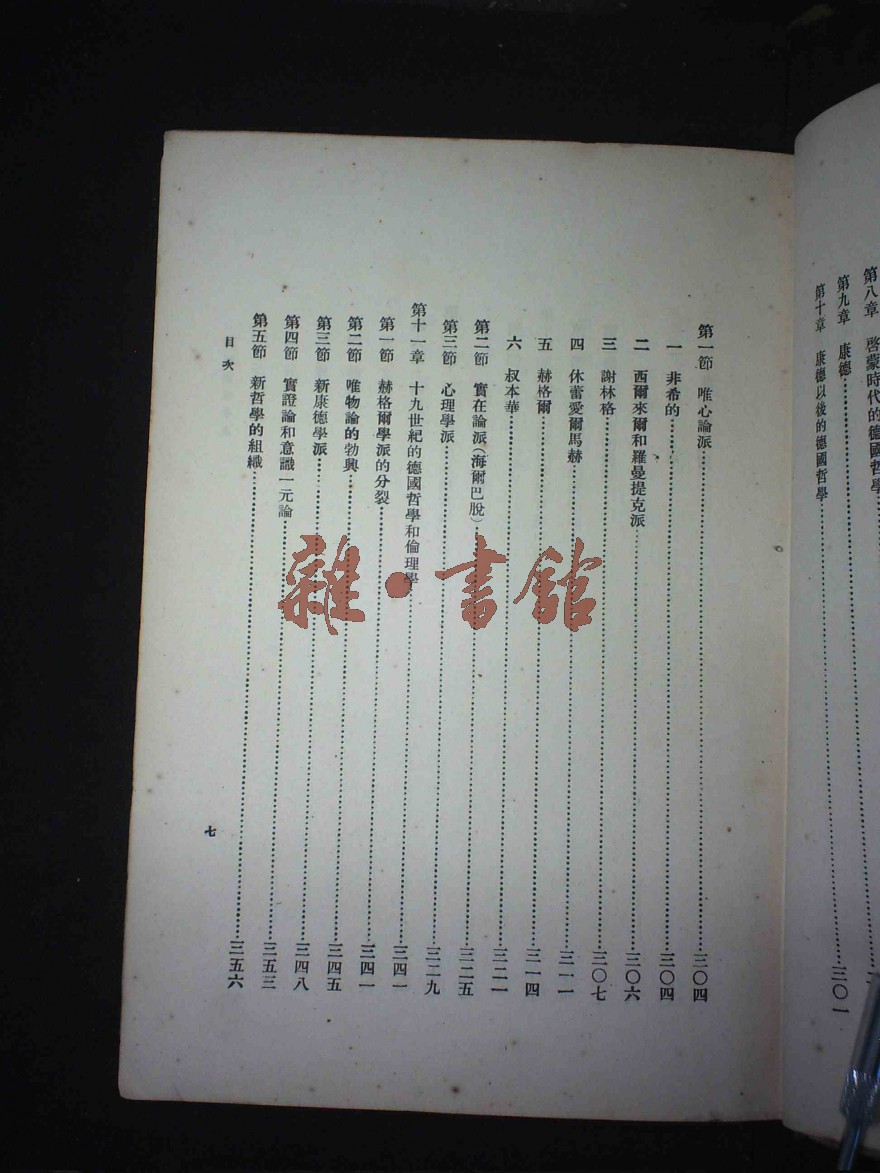 第八章 啓蒙時代的德國哲學
第九章 康德
第十章 康德以後的德國哲學……三〇一
第一節 唯心論派……三〇四
一 非希的……三〇四
二 西爾來爾和羅曼提克派……三〇六
三 謝林格……三〇七
四 休蕾愛爾馬赫……三一一
五 赫格爾……三一四
六 叔本華……三二一
第二節 實在論派(海爾巴脫)……三二五
第三節 心理學派……三二九
第十一章 十九世紀的德國哲學和倫理學……三四一
第一節 赫格爾學派的分裂……三四一
第二節 唯物論的勃興……三四五
第三節 新康德學派……三四八
第四節 實證論和意識一元論……三五三
第五節 新哲學的組織……三五六
目次
七
雜·書館